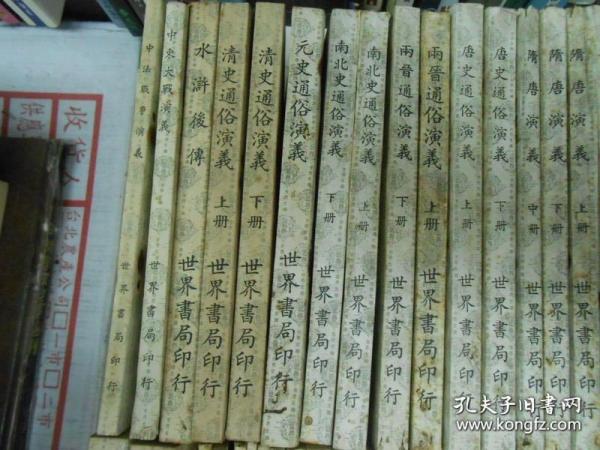 中法戰爭演義
世界書局印行
中東大戰演義
世界書局印行
水滸後傳
世界書局印行
清史通俗演義
上册
世界書局印行
清史通俗演義
下册
世界書局印行
元史通俗演義
世界書局印行
南北史通俗演義
下册
世界書局印行
南北史通俗演義
上册
世界書局印行
兩晉通俗演義
下册
世界書局印行
兩晉通俗演義
上册
世界書局印行
唐史通俗演義
上册
世界書局印行
唐史通俗演義
下册
世界書局印行
隋唐演義
中册
世界書局印行
隋唐演義
下册
世界書局印行
隋唐演義
上册
世界書局印行
收貨人
孔夫子旧书网
www.kongfz.com